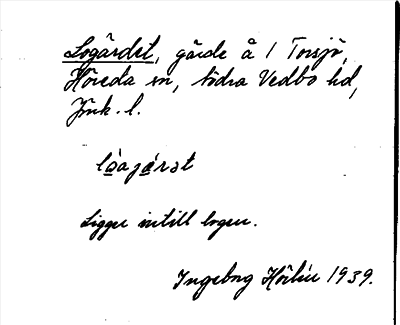 Logärdet, gärde å 1 Torsjö,
Höreda sn, södra Vedbo hd,
Jönk. l.
Ligger intill logen.
Ingeborg Hörlén 1939.